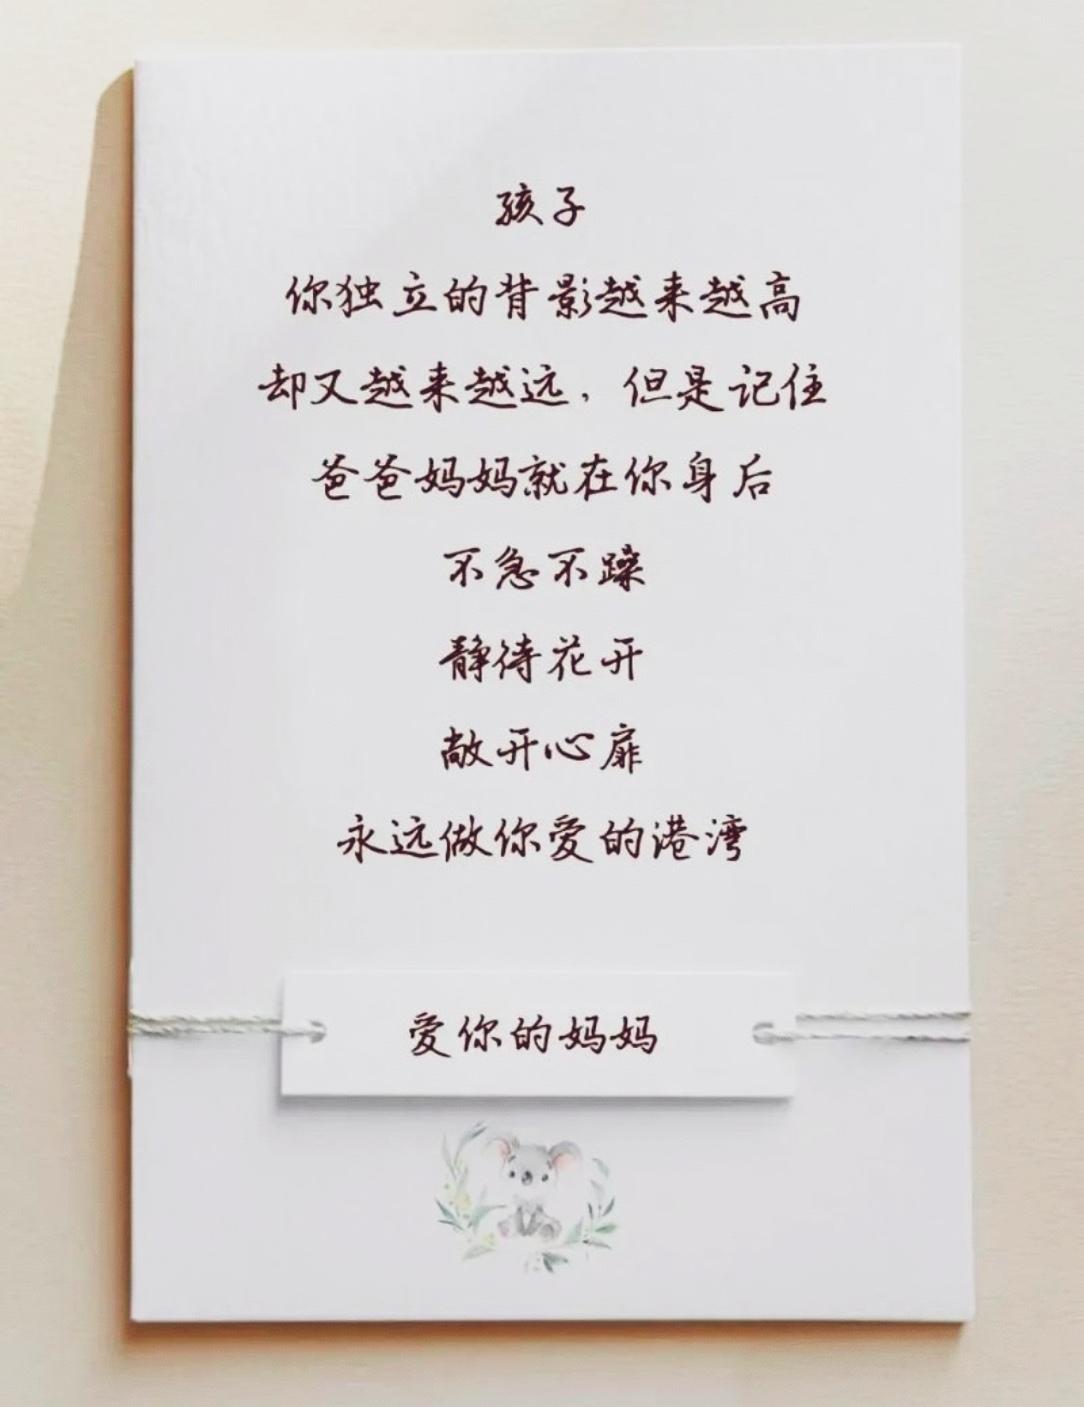 孩子
你独立的背影越来越高
却又越来越远，但是记住
爸爸妈妈就在你身后
不急不躁
静待花开
敞开心扉
永远做你爱的港湾
爱你的妈妈